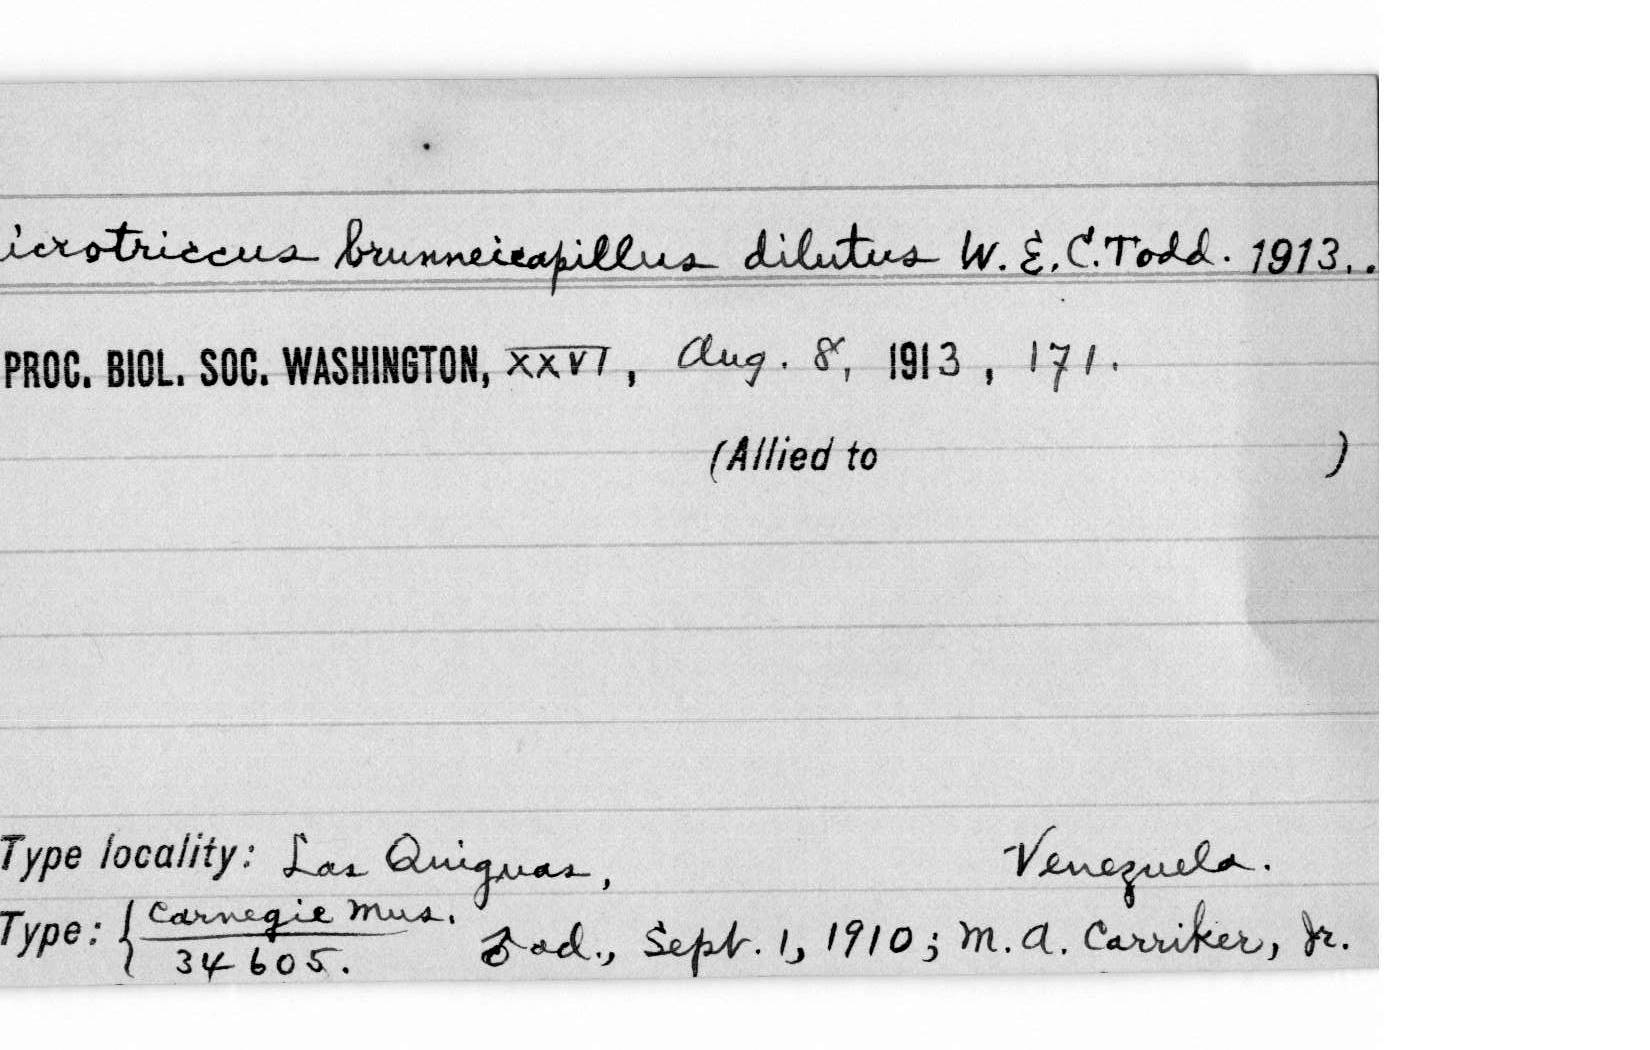 icrotriccus brunneicapillus dilutus W. E. C. Todd. 1913..
PROC. BIOL. SOC. WASHINGTON, XXVI, Aug. 8, 1913, 171.
(Allied to )
Type locality: Las Quiguas, Venezuela.
Type: { Carnegie Mus. 
34605. ♂ ad., Sept. 1, 1910; M. A. Carriker, Jr.